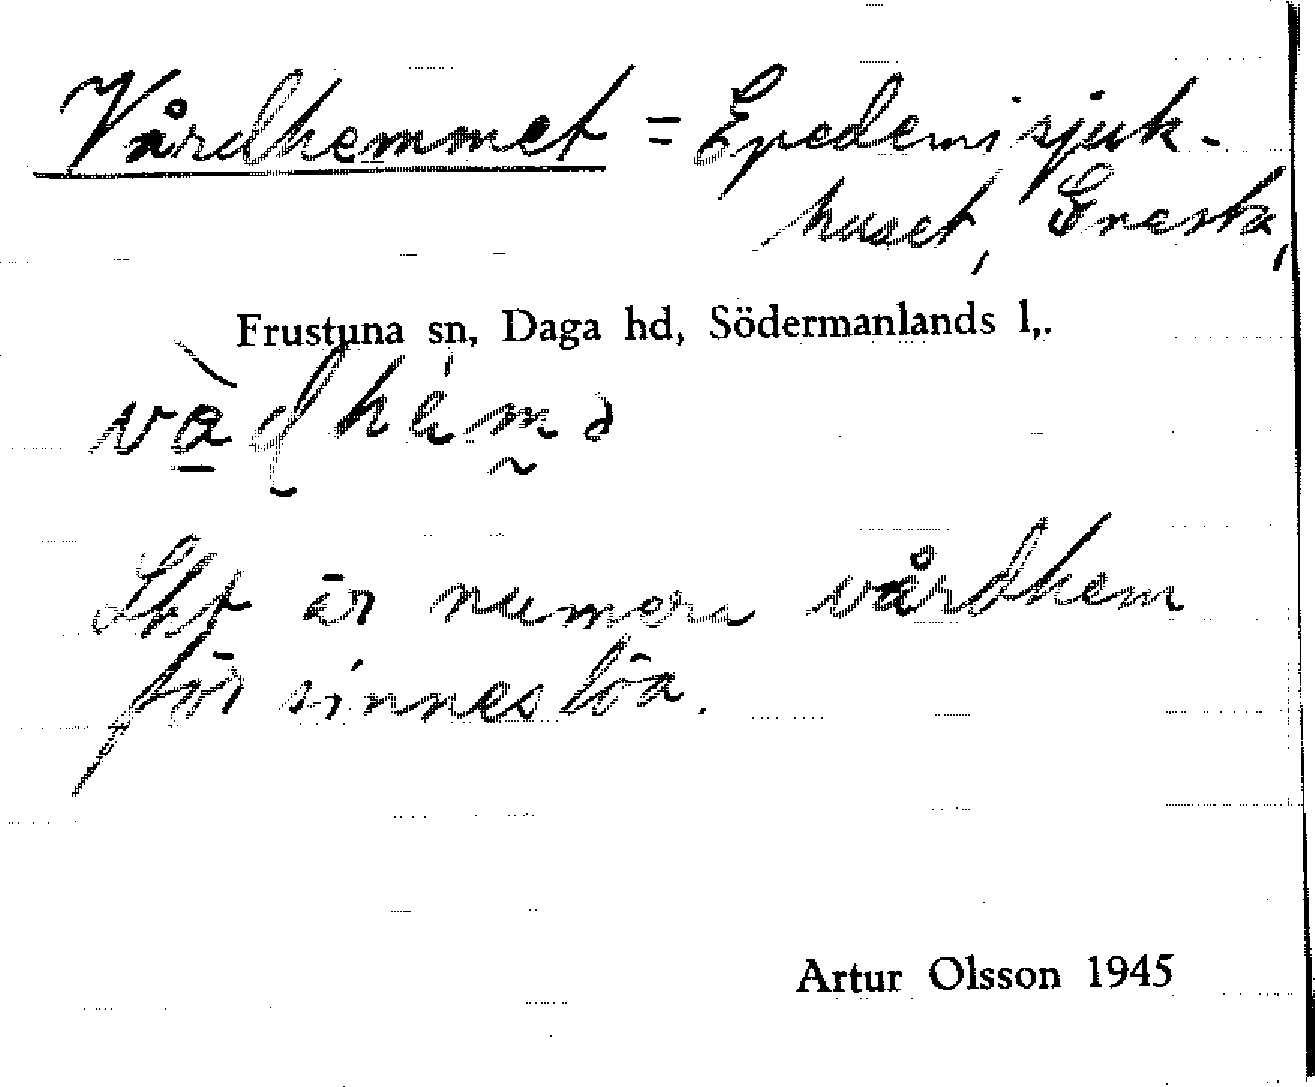 Vårdhemmet = Epedemisjuk-
huset, Gnesta,
Frustuna sn, Daga hd, Södermanlands l,.
Sht är numera vårdhem
för sinneslöa.
Artur Olsson 1945